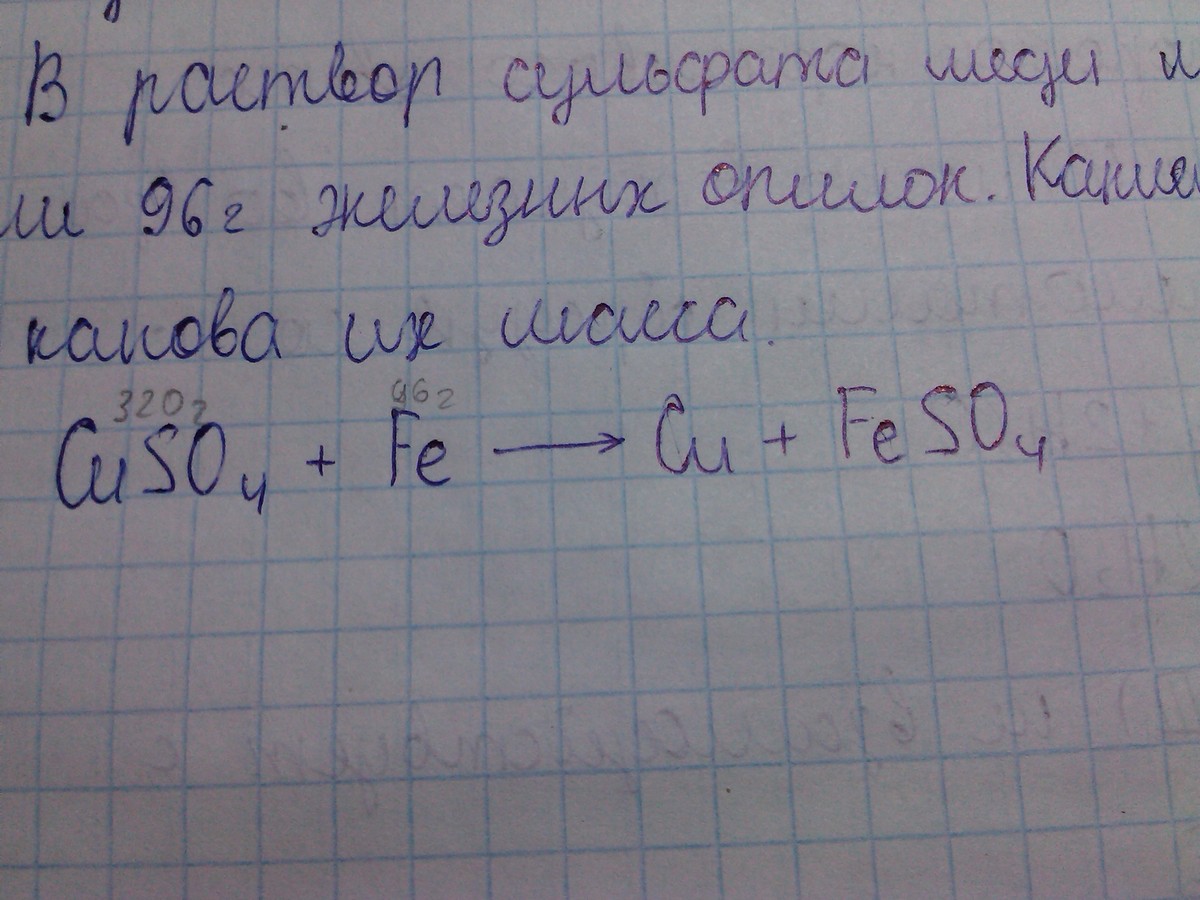 В раствор сульфата меди м
ли 96г железных опилок. Какие
какова их масса.
320г 96г
CuSO₄ + Fe ⟶ Cu + FeSO₄